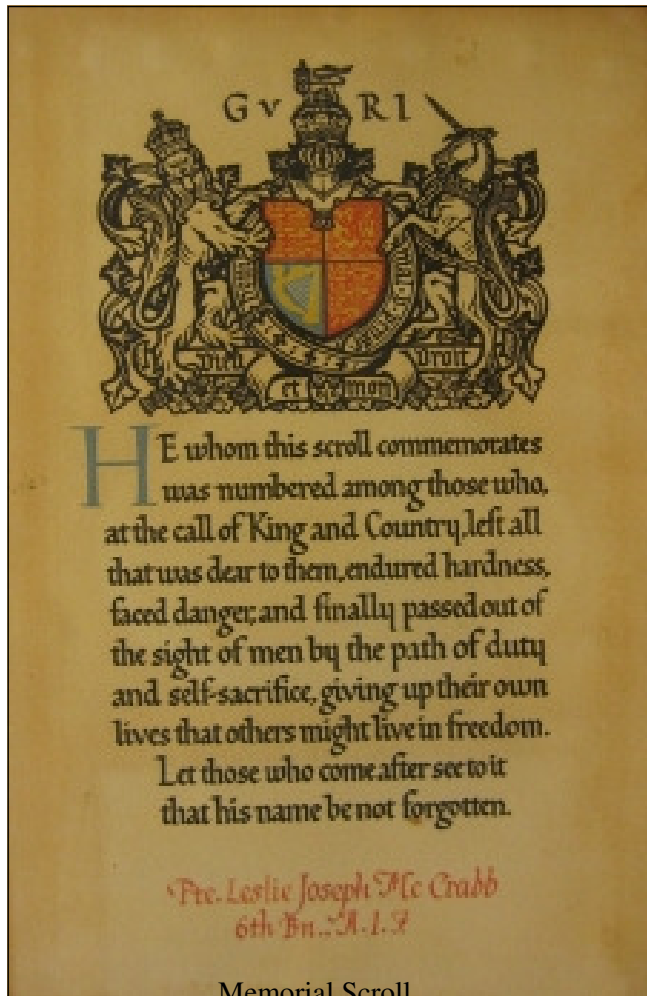 G v R I
Dieu Droit
et mon
HE whom this scroll commemorates
was numbered among those who,
at the call of King and Country, left all
that was dear to them, endured hardness,
faced danger, and finally passed out of
the sight of men by the path of duty
and self-sacrifice, giving up their own
lives that others might live in freedom.
Let those who come after see to it
that his name be not forgotten.
Pte. Leslie Joseph Mc Crabb
6th Bn., A.I.F
Memorial Scroll